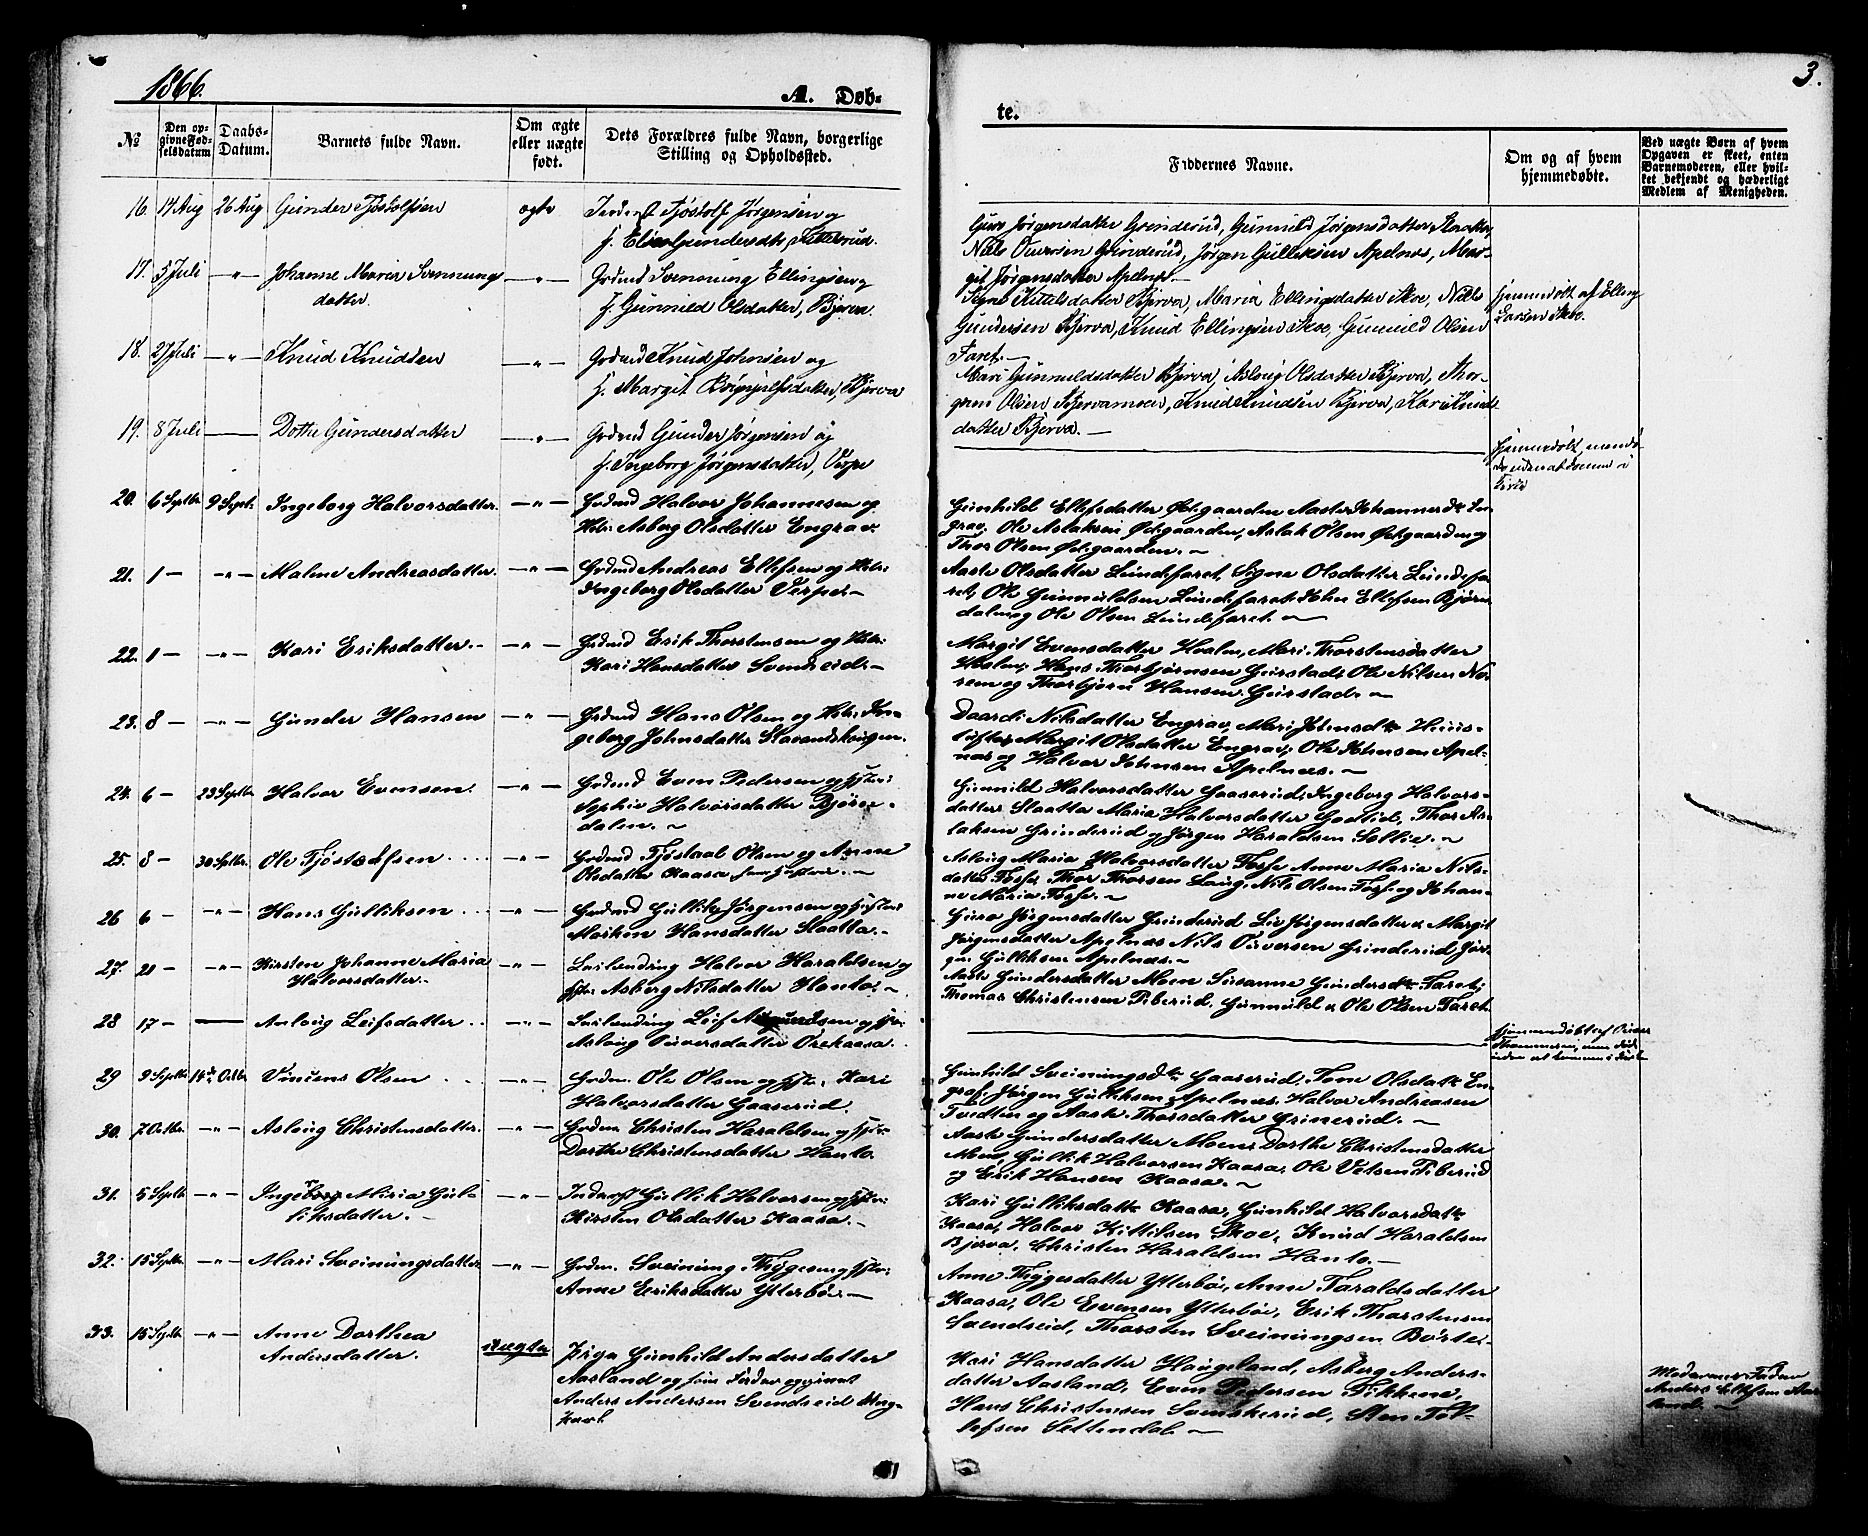 1866.
A. Døb-
te.
3.
№
Den op-
givne Fød-
selsdatum
Daabs-
Datum.
Barnets fulde Navn.
Om ægte
eller uægte
født.
Dets Forældres fulde Navn, borgerlige
Stilling og Opholdssted.
Faddernes Navne.
Om og af hvem
hjemmedøbte.
Ved uægte Børn af hvem
Opgaven er skeet, enten
Barnemoderen, eller hvil-
ket bekjendt og hæderligt
Medlem af Menigheden.
16. 14 Aug 26 Aug Gunder Tjøstolfsen ægte Tjøstolf Jørgensen og
Gundersdtr
Guro Jørgensdatter Grinderud, Gunnild Jørgensdatter Slaatta,
Niels Grinderud, Jørgen Gulliksen Apelnæs, Mar-
git Jørgensdatter Apelnæs.
17. 5 Juli -"- Johanne Maria Svennungs
datter. -"- Grdmd Svennung Ellingsen og
H. Gunnild Olsdatter, Bjerva.
Signe Kittelsdatter Bjerva, Maria Ellingsdatter Skoe, Niels
Gundersen Bjerva, Knud Ellingsen Skoe, Gunnuld Olsen
Faret.—
hjemmedøbt af Elling
Larsen Skoe.
18. 27 Juli -"- Knud Knudsen -"- Grdmd Knud Johnsen og
H. Margit Brynjulfsdatter, Bjerva
Mari Gunnuldsdatter Bjerva, Aslaug Olsdatter Bjerva, Thor-
grim Olsen Bjervamoen, Knud Knudsen Bjerva, Kari Knuds-
datter Bjerva.—
19. 8 Juli — Dothe Gundersdatter -"- Grdmd Gunder Jørgensen og
H. Ingeborg Jørgensdatter, Verpe
hjemmedøbt, men dø-
de uden at komme i
Kirke
20. 6 Septbr 9 Septbr Ingeborg Halvorsdatter. -"- Grdmd Halvor Johannesen og
Hstr: Asborg Olsdatter Engrav.
Gunhild Ellefsdatter Ødegaarden Aaste Johannesdtr En-
grav, Ole Aslaksen Ødegaarden, Aslak Olsen Ødegaarden og
Thor Olsen Ødegaarden.—
21. 1 — -"- Malene Andreasdatter. -"- Grdmd Andreas Ellefsen og Hstr:
Ingeborg Olsdatter Verpe:—
Aaste Olsdatter Lundefaret, Signe Olsdatter Lundefa-
ret, Ole Gunnuldsen Lundefaret, John Ellefsen Bjørn-
dalen og Ole Olsen Lundefaret.—
22. 1 — -"- Kari Eriksdatter.— -"- Grdmd Erik Thorstensen og Hstr:
Kari Hansdatter Svendseid.—
Margit Evensdatter Hvalen, Mari Thorstensdatter
Hvalen, Hans Thorbjørnsen Gurstad, Ole Nilsen No-
rem og Thorbjørn Hansen Gurstad.—
23. 8 — -"- Gunder Hansen -"- Grdmd Hans Olsen og Hstr: In-
geborg Johnsdatter Stavandskougen.
Daardi Nilsdatter Engrav, Mari Johnsdtr Huus-
tuften, Margit Olsdatter Engrav, Ole Johnsen Apel-
næs og Halvor Johnsen Apelnæs.—
24. 6 — 23 Septbr Halvor Evensen. -"- Grdmd Even Pedersen og Hstr:
Sophie Halvorsdatter Bjørn-
dalen.—
Gunnild Halvorsdatter Gaaserud, Ingeborg Halvors-
datter Slaatta Maria Halvorsdatter Thor As-
laksen Grinderud og Jørgen Haraldsen Sollie.—
25. 8 — 30 Septbr. Ole Tjøstaalfsen -"- Grdmd Tjøstaal Olsen og Anne
Olsdatter Kaasa
Aslaug Maria Halvorsdatter Fosse Anne Maria Nils-
datter Fosse, Thor Thorsen Nils Olsen Fosse og Johan-
ne Maria Fosse.—
26 6 — -"- Hans Gulliksen -"- Grdmd Gullik Jørgensen og Hustru:
Marken Hansdatter Slaatta.—
Guro Jørgensdatter Grinderud Liv Jørgensdatter & Margit
Jørgensdatter Apelnæs Nils Siversen Grinderud, Jør-
gen Gulliksen Apelnæs.—
27. 21 — -"- Kirsten Johanne Maria
Halvorsdatter.— -"- Leilænding Halvor Haraldsen og
Hstr: Asberg Nilsdatter Hanto:—
Aaste Gundersdatter Moen Susanne Gundersdtr Faret,
Thomas Christensen Piberud, Gunnuld & Ole Olsen Faret
28 17 — — Aslaug Leifsdatter -"- Leilænding Leif og Hstr:
Aslaug Siversdatter Ørekaasa.
Hjemmedøbt af
Thommesen, men død
inden at komme i Kirke
29 9 Septbr 14de Octbr Vincens Olsen -"- Grdm. Ole Olsen og Hstr: Kari
Halvorsdatter Gaaserud.
Gunhild Sveinungsdtr Gaaserud, Tone Olsdatr En-
graf, Jørgen Gulliksen Apelnæs, Halvor Andreasen
Tvedten og Aaste Thorsdatter Grinerud.—
30. 7 Octbr. -"- Aslaug Christensdatter. -"- Grdm Christen Haraldsen og Hstr:
Dorthe Christensdatter Hanto.
Aaste Gundersdatter Moen, Dorthe Christensdatter
Moen, Gullik Halvorsen Kaasa, Ole Piberud
og Erik Hansen Kaasa.—
31. 5 Septbr -"- Ingeborg Maria Gul-
liksdatter.— -"- Inderst Gullik Halvorsen og Hstr:
Kirsten Olsdatter Kaasa.—
Kari Gulliksdatter Kaasa, Gunhild Halvorsdatr
Kaasa, Halvor Kittilsen Skoe, Knud Haraldsen
Bjerva, Christen Haraldsen Hanto.—
32. 15 Septbr -"- Mari Sveinungsdatter -"- Grdm. Sveinung Thygesen og Hstr:
Anne Eriksdatter Ytterbøe.—
Anne Thygesdatter Ytterbøe, Anne Taraldsdatter
Kaasa, Ole Evensen Ytterbøe, Erik Thorstensen
Svendseid, Thorsten Sveinungsen Børte.
33. 15 Septbr -"- Anne Dorthea
Andersdatter. uægte Pige Gunhild Andersdatter
Aasland og
Anders Andersen Svendseid
Kari Hansdatter Haugeland, Asberg Anders-
datter Aasland, Even Pedersen Bikkene,
Hans Christensen Svenskerud, Sten Tol-
lefsen Settendal.—
Moderens Fader
Anders Aas-
land.—